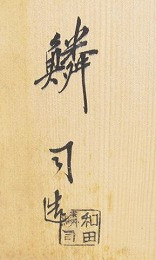 鱗司造
和田
鱗司